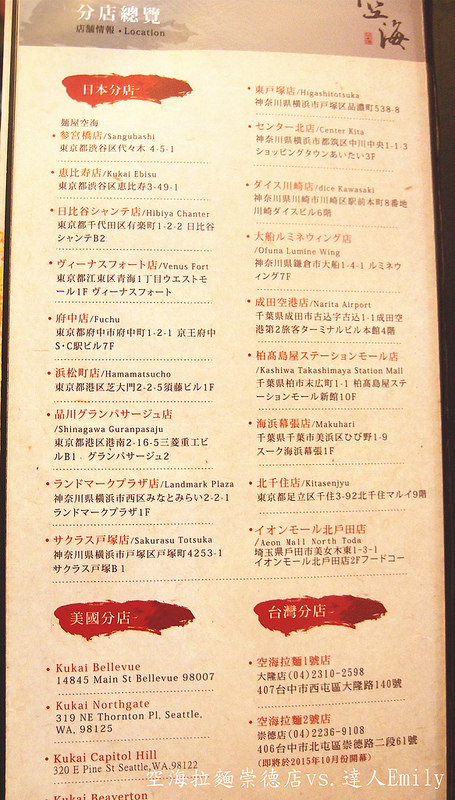 分店總覽
店舖情報・Location
空海
日本分店
麺屋空海
• 参宮橋店/Sangubashi
東京都渋谷区代々木 4-5-1
• 恵比寿店/Kukai Ebisu
東京都渋谷区恵比寿3-49-1
• 日比谷シャンテ店/Hibiya Chanter
東京都千代田区有楽町1-2-2 日比谷
シャンテB2
• ヴィーナスフォート店/Venus Fort
東京都江東区青海1丁目ウエストモ
ール1F ヴィーナスフォート
• 府中店/Fuchu
東京都府中市府中町1-2-1 京王府中
S・C駅ビル7F
• 浜松町店/Hamamatsucho
東京都港区芝大門2-2-5須藤ビル1F
• 品川グランパサージュ店
/Shinagawa Guranpasaju
東京都港区港南2-16-5三菱重工ビ
ルB1 グランパサージュ2
• ランドマークプラザ店/Landmark Plaza
神奈川県横浜市西区みなとみらい2-2-1
ランドマークプラザ1F
• サクラス戸塚店/Sakurasu Totsuka
神奈川県横浜市戸塚区戸塚町4253-1
サクラス戸塚B1
• 東戸塚店/Higashitotsuka
神奈川県横浜市戸塚区品濃町538-8
• センター北店/Center Kita
神奈川県横浜市都筑区中川中央1-1-3
ショッピングタウンあいたい3F
• ダイス川崎店/dice Kawasaki
神奈川県川崎市川崎区駅前本町8番地
川崎ダイスビル6階
• 大船ルミネウィング店
/Ofuna Lumine Wing
神奈川県鎌倉市大船1-4-1 ルミネウ
ィング7F
• 成田空港店/Narita Airport
千葉県成田市古込字古込1-1成田空
港第2旅客ターミナルビル本館4階
• 柏高島屋ステーションモール店
/Kashiwa Takashimaya Station Mall
千葉県柏市末広町1-1 柏高島屋ステ
ーションモール新館10F
• 海浜幕張店/Makuhari
千葉県千葉市美浜区ひび野1-9
スーク海浜幕張1F
• 北千住店/Kitasenjyu
東京都足立区千住3-92北千住マルイ9階
• イオンモール北戸田店
/Aeon Mall North Toda
埼玉県戸田市美女木東1-3-1
イオンモール北戸田店2Fフードコー
美國分店
• Kukai Bellevue
14845 Main St Bellevue 98007
• Kukai Northgate
319 NE Thornton Pl, Seattle,
WA, 98125
• Kukai Capitol Hill
320 E Pine St Seattle,WA,98122
• Kukai Beaverton
台灣分店
• 空海拉麵1號店
大隆店(04)2310-2598
407台中市西屯區大隆路140號
• 空海拉麵2號店
崇德店(04)2236-9108
406台中市北屯區崇德路二段61號
(即將於2015年10月份開幕)
空海拉麵崇德店vs.達人Emily